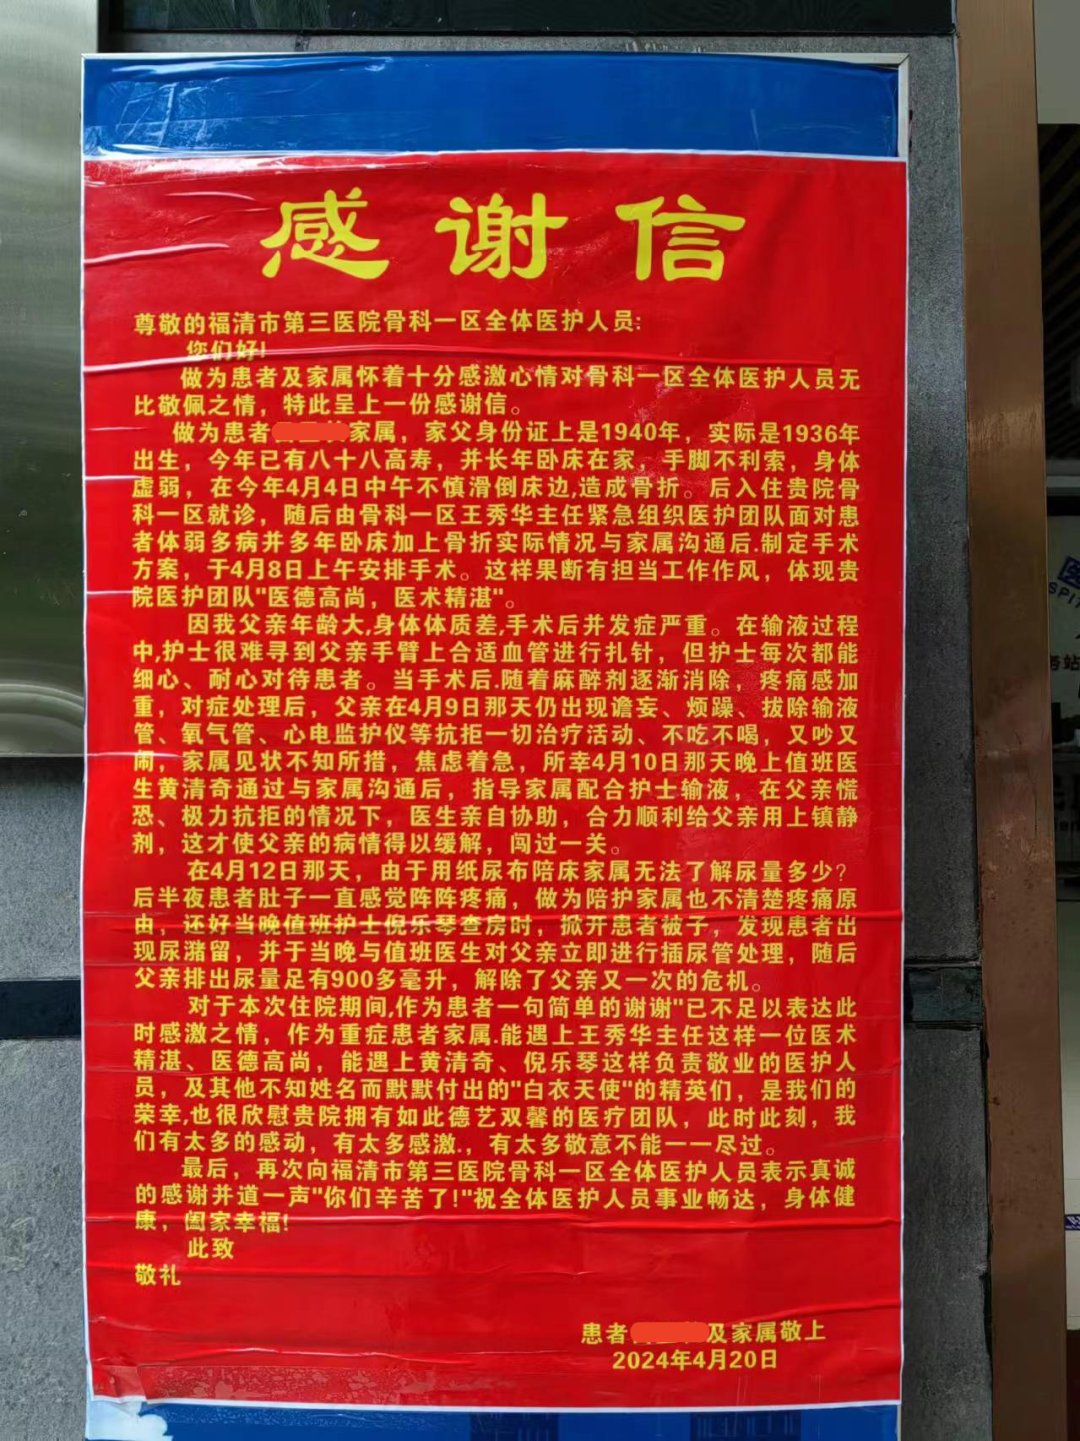 感谢信
尊敬的福清市第三医院骨科一区全体医护人员:
您们好!
做为患者及家属怀着十分感激心情对骨科一区全体医护人员无
比敬佩之情，特此呈上一份感谢信。
做为患者家属，家父身份证上是1940年，实际是1936年
出生，今年已有八十八高寿，并长年卧床在家、手脚不利索，身体
虚弱，在今年4月4日中午不慎滑倒床边,造成骨折。后入住贵院骨
科一区就诊，随后由骨科一区王秀华主任紧急组织医护团队面对患
者体弱多病并多年卧床加上骨折实际情况与家属沟通后.制定手术
方案，于4月8日上午安排手术。这样果断有担当工作作风，体现贵
院医护团队"医德高尚，医术精湛"。
因我父亲年龄大,身体体质差,手术后并发症严重。在输液过程
中,护士很难寻到父亲手臂上合适血管进行扎针，但护士每次都能
细心、耐心对待患者。当手术后.随着麻醉剂逐渐消除，疼痛感加
重，对症处理后，父亲在4月9日那天仍出现谵妄、烦躁、拔除输液
管、氧气管、心电监护仪等抗拒一切治疗活动、不吃不喝，又吵又
闹，家属见状不知所措，焦虑着急，所幸4月10日那天晚上值班医
生黄清奇通过与家属沟通后，指导家属配合护士输液，在父亲慌
恐、极力抗拒的情况下，医生亲自协助，合力顺利给父亲用上镇静
剂，这才使父亲的病情得以缓解，闯过一关。
在4月12日那天，由于用纸尿布陪床家属无法了解尿量多少?
后半夜患者肚子一直感觉阵阵疼痛，做为陪护家属也不清楚疼痛原
由，还好当晚值班护士倪乐琴查房时，掀开患者被子，发现患者出
现尿潴留，并于当晚与值班医生对父亲立即进行插尿管处理，随后
父亲排出尿量足有900多毫升，解除了父亲又一次的危机。
对于本次住院期间,作为患者一句简单的谢谢"已不足以表达此
时感激之情，作为重症患者家属.能遇上王秀华主任这样一位医术
精湛、医德高尚，能遇上黄清奇、倪乐琴这样负责敬业的医护人
员，及其他不知姓名而默默付出的"白衣天使"的精英们，是我们的
荣幸,也很欣慰贵院拥有如此德艺双馨的医疗团队，此时此刻，我
们有太多的感动，有太多感激.，有太多敬意不能一一尽过。
最后，再次向福清市第三医院骨科一区全体医护人员表示真诚
的感谢并道一声"你们辛苦了!"祝全体医护人员事业畅达，身体健
康，阖家幸福!
此致
敬礼
患者及家属敬上
2024年4月20日